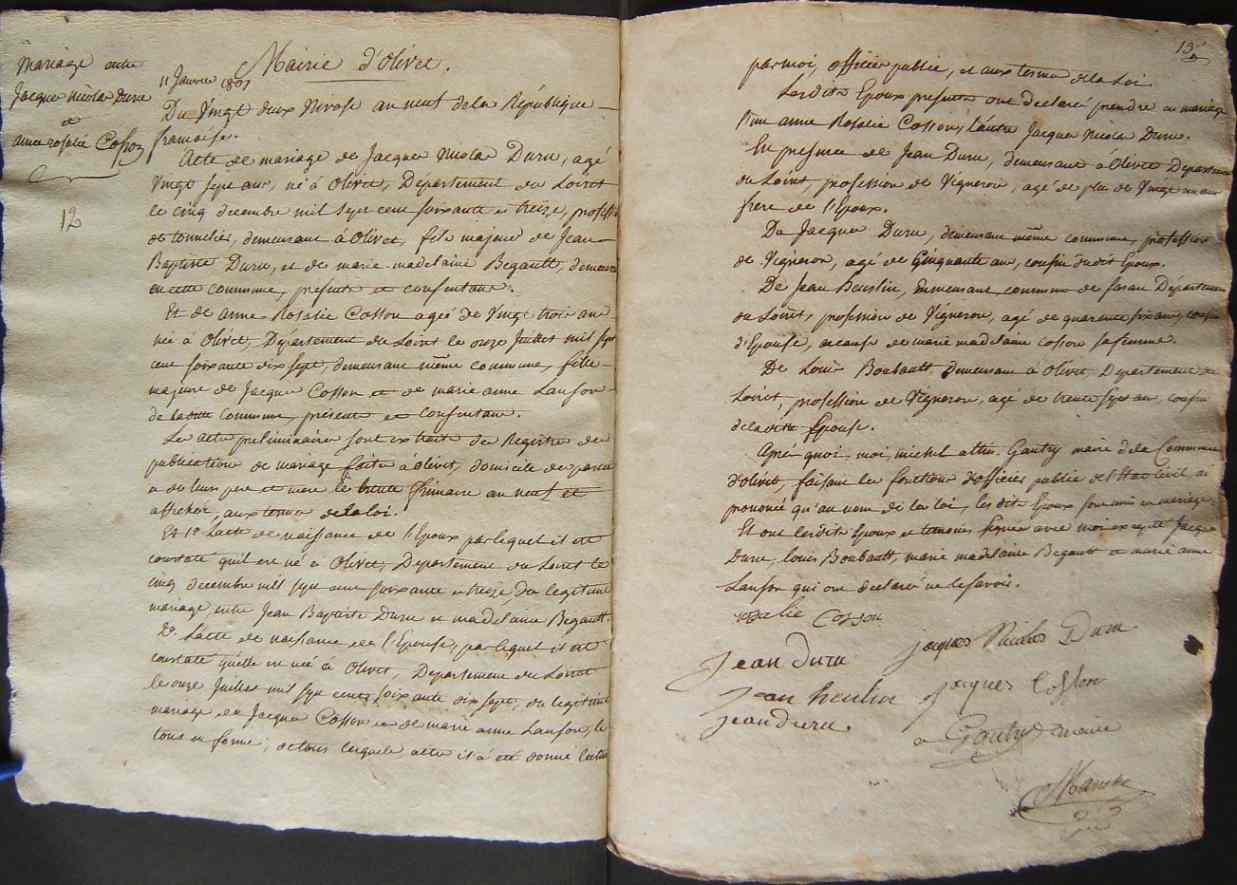 Mariage entre
Jacque Nicolas Duru
et
anne rosalie Cosson
12
Mairie d'Olivet.
11 Janvier 1801
Du Vingt deux Nivose an neuf de la République
francaise.
Acte de mariage de Jacque Nicolas Duru, agé
Vingt sept ans, né à Olivet, Département du Loiret
le cinq decembre mil sept cent soixante et treize, profession
de tonnelier, demeurant à Olivet, fils majeur de Jean
Baptiste Duru, et de marie madelaine Begault, demeurant
en cette commune, presents et consentant.
Et de anne Rosalie Cosson agée de Vingt trois ans
née à Olivet, Département du Loiret le onze Juillet mil sept
cent soixante dix sept, demeurant même commune, fille
majeure de Jacque Cosson et de marie anne Lanson
de ladite Commune, présents et consentant.
Les actes préliminaires sont extraits des Registres des
publications de mariage faites à olivet, domicile des parties
et de leurs pere et mere le frimaire an neuf et
affichés, aux termes de la loi.
Et 1º L'acte de naissance de l'Epoux par lequel il est
constaté qu'il est né à Olivet, Département du Loiret le
cinq decembre mil sept cent soixante et treize du legitime
mariage entre Jean Baptiste Duru et madelaine Begault.
2º L'acte de naissance de l'Epouse, par lequel il est
constaté qu'elle est née à Olivet, Département du Loiret
le onze Juillet mil sept cent soixante dix sept, du legitime
mariage de Jacque Cosson et de marie anne Lanson, le
tout en forme; de tous lesquels actes il a été donné lecture
13
par moi, officier public, et aux termes de la Loi
Lesdits Epoux presents ont declaré prendre en mariage
l'un anne Rosalie Cosson, l'autre Jacque Nicolas Duru.
En presence de Jean Duru, demeurant à Olivet Département
du Loiret, profession de Vigneron, agé de plus de Vingt un ans
frere de l'Epoux.
De Jacque Duru, demeurant même commune, profession
de Vigneron, agé de Cinquante ans, cousin dudit Epoux.
De Jean heuslin, demeurant commune de saran Département
du Loiret, profession de Vigneron, agé de quarante six ans, cousin
d'Epouse, acause de marie madelaine cosson sa femme.
De Louis Boubault demeurant à Olivet, Departement du
Loiret, profession de Vigneron, agé de trente sept ans, cousin
de ladite Epouse.
Après quoi, moi, michel Gautry maire de la Commune
d'olivet, faisant les fonctions d'officier public de l'Etat civil, ai
prononcé qu'au nom de la loi, lesdits Epoux sont unis en mariage,
Et ont lesdits Epoux et temoins signé avec moi excepté Jacque
Duru, louis Boubault, marie madelaine Begault et marie anne
Lanson qui ont declaré ne le savoir.
rosalie Cosson
jean duru jaques Nicolas Duru
jean heulin jacques Cosson
jean duru.
Gautry maire